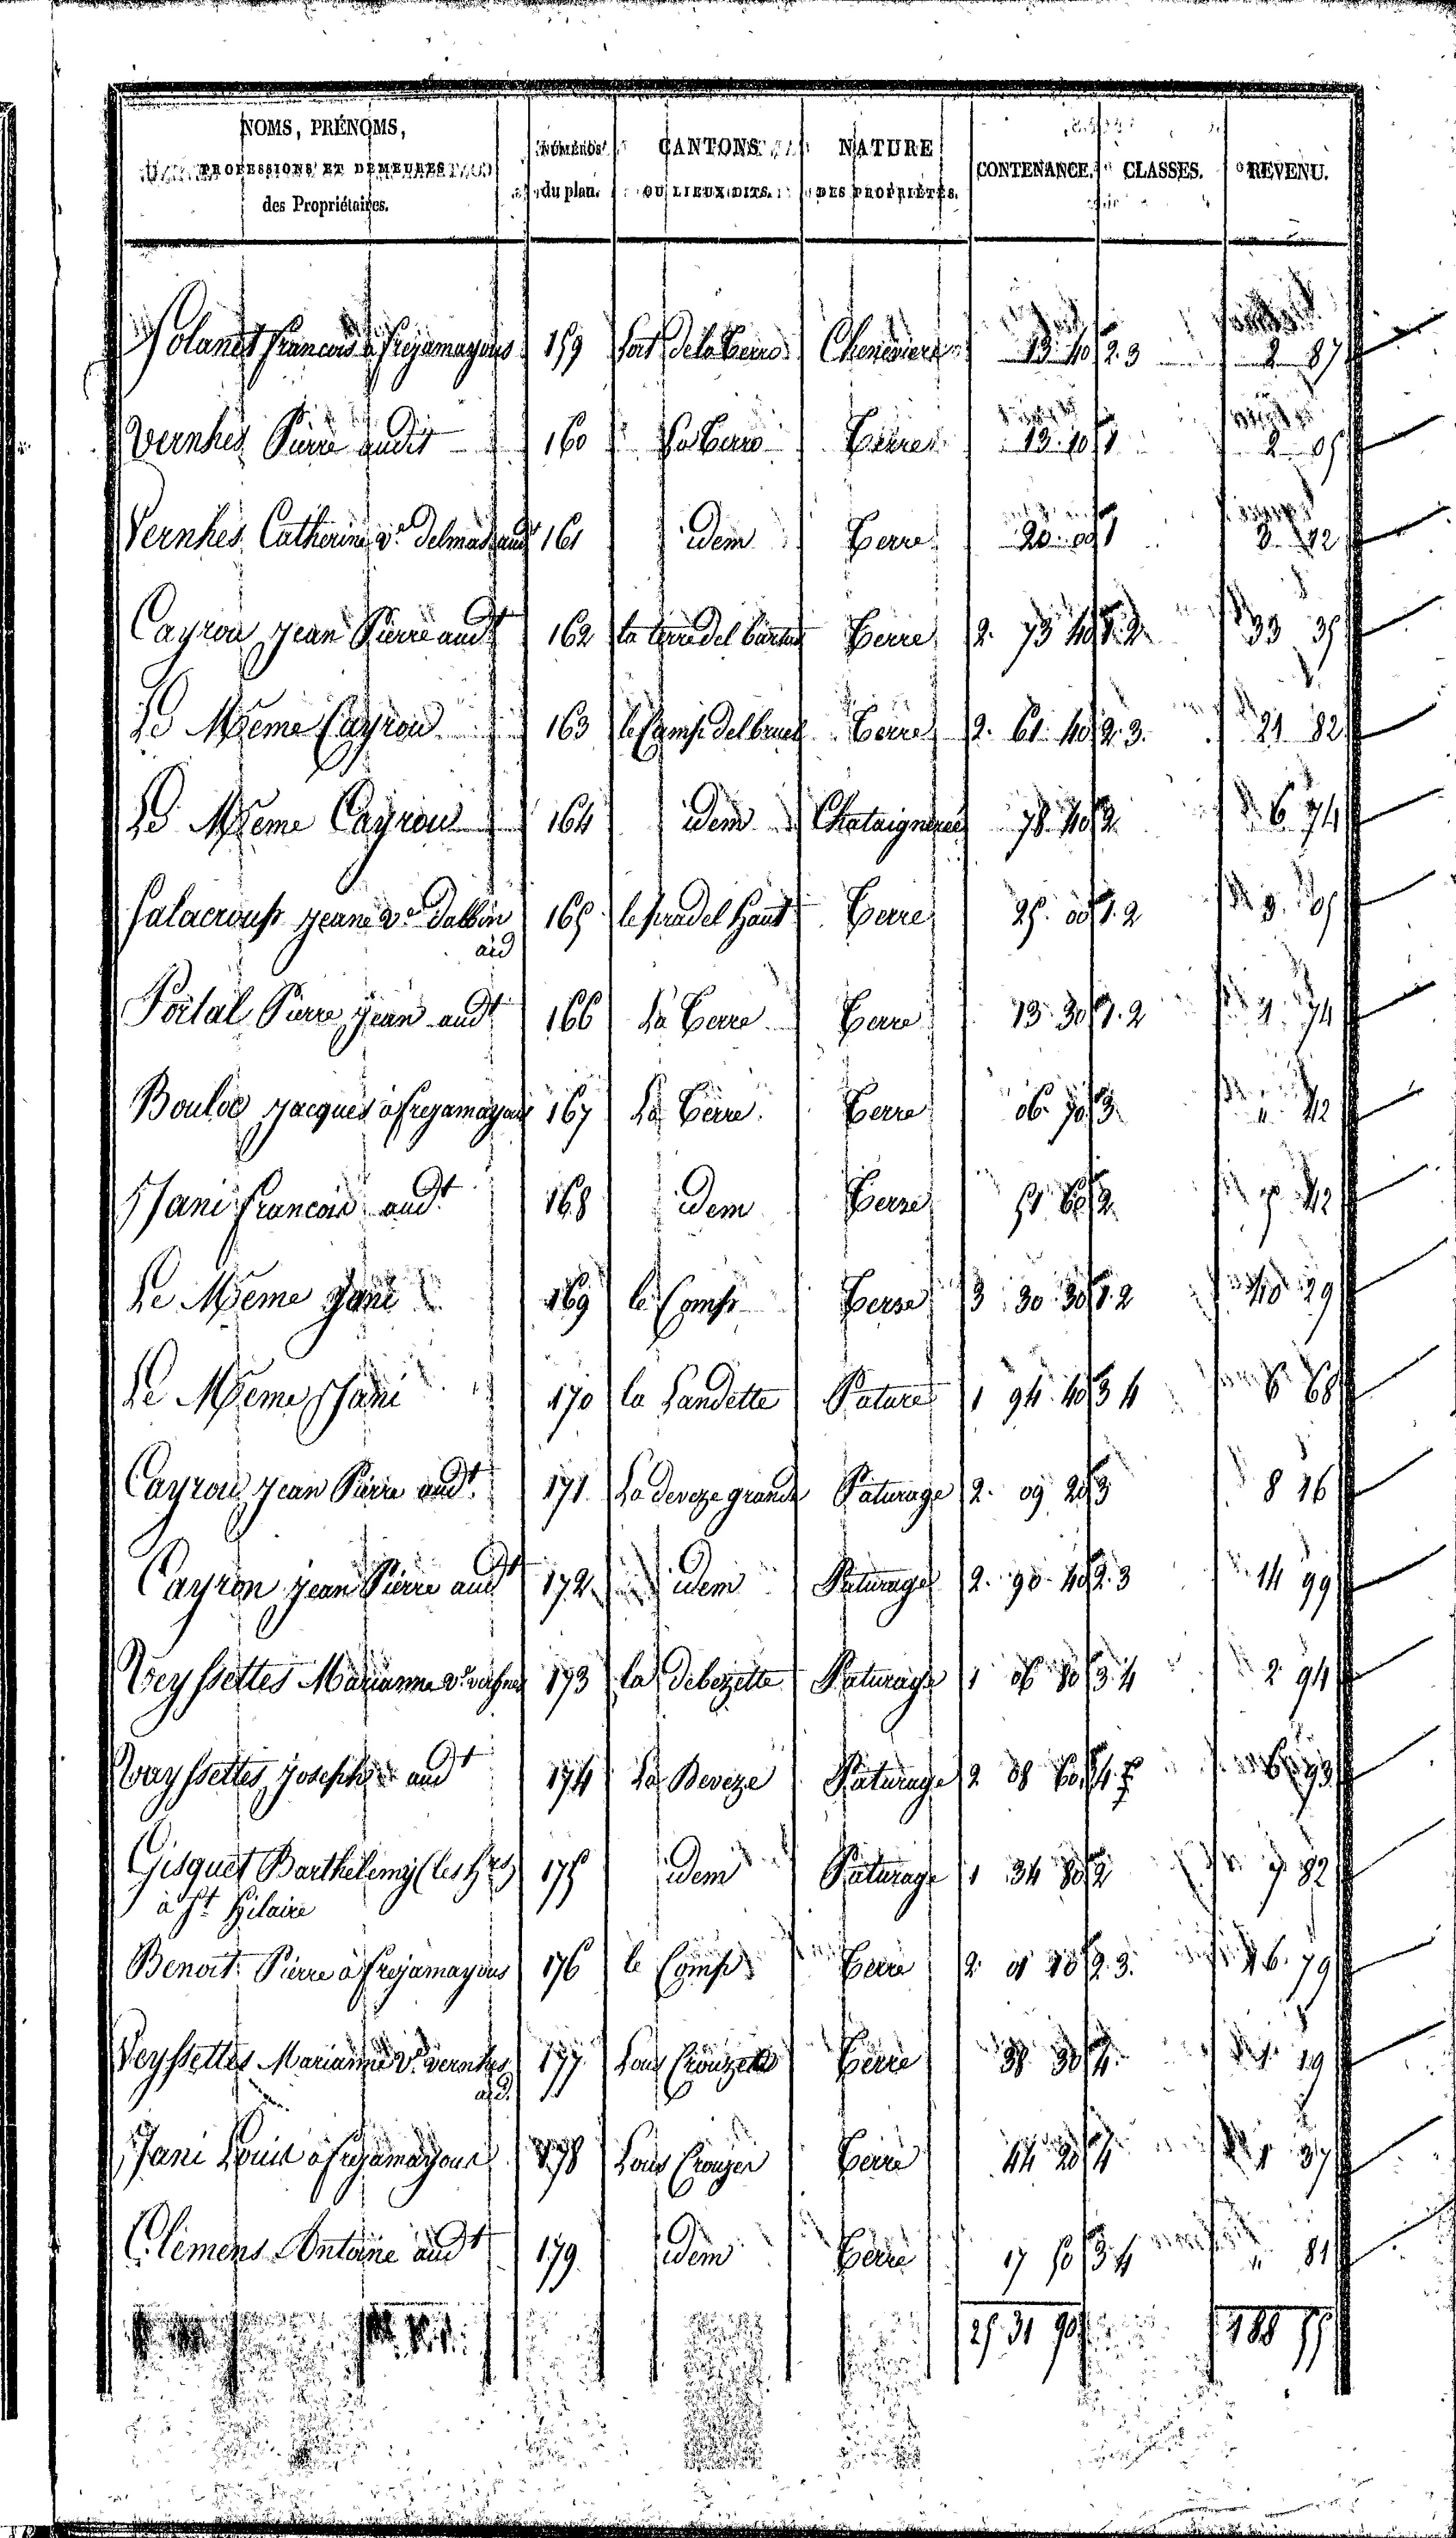 NOMS, PRÉNOMS, PROFESSIONS ET DEMEURES des Propriétaires. NUMÉROS du plan. CANTONS OU LIEUX DITS. NATURE DES PROPRIÉTÉS. CONTENANCE. CLASSES. REVENU.
Solanet francois à frejamayous 159 fort de la Terre Cheneviere 13 40 2.3 2 87
Vernhes Pierre audit 160 La Terre Terre 13 10 1 2 05
Vernhes Catherine ve Delmas audt 161 idem Terre 20 00 1 3 12
Cayrou jean Pierre audt 162 la terre del Terre 2. 73 40 1.2 33 35
Le Meme Cayrou 163 le Camp del bruel Terre 2. 61 40 2.3. 21 82
Le Meme Cayrou 164 idem Chataigneraie 78 40 2 6 74
jeane ve Dalbin aid 165 Haut Terre 25 00 1.2 3. 05
Portal Pierre jean audt 166 La Terre Terre 13 30 1.2 1 74
Bouloc jacques à frejamayous 167 La Terre Terre 06 70 3 " 42
Jani francois audt 168 idem Terre 51 60 2 5 42
Le Meme Jani 169 le Comp Terre 3 30 30 1.2 40 29
Le Meme Jani 170 la Landette Pature 1 94 40 3 4 6 68
Cayrou jean Pierre audt 171 La deveze grande Paturage 2. 09 20 3 8 16
Cayron jean Pierre audt 172 idem Paturage 2. 90 40 2.3 14 99
Veyssettes Marianne ve 173 la debezette Paturage 1 06 80 3.4 2 94
Vayssettes joseph audt 174 La Deveze Paturage 2 08 60 6 93
Gisquet Barthélemy (les hrs) 175 idem Paturage 1 34 80 2 7 82
à St Hilaire
Benoit Pierre à frejamayous 176 le Comp Terre 2. 01 10 2.3. 16. 79
Veyssettes Marianne Ve vernhes aid. 177 Lous Crouzets Terre 38 30 4 1. 19
Jani Louis à frejamayous 178 Lous Crouzes Terre 44 20 4 1 37
Clemens Antoine audt 179 idem Terre 17 50 3 4 " 81
25 31 90 188 55